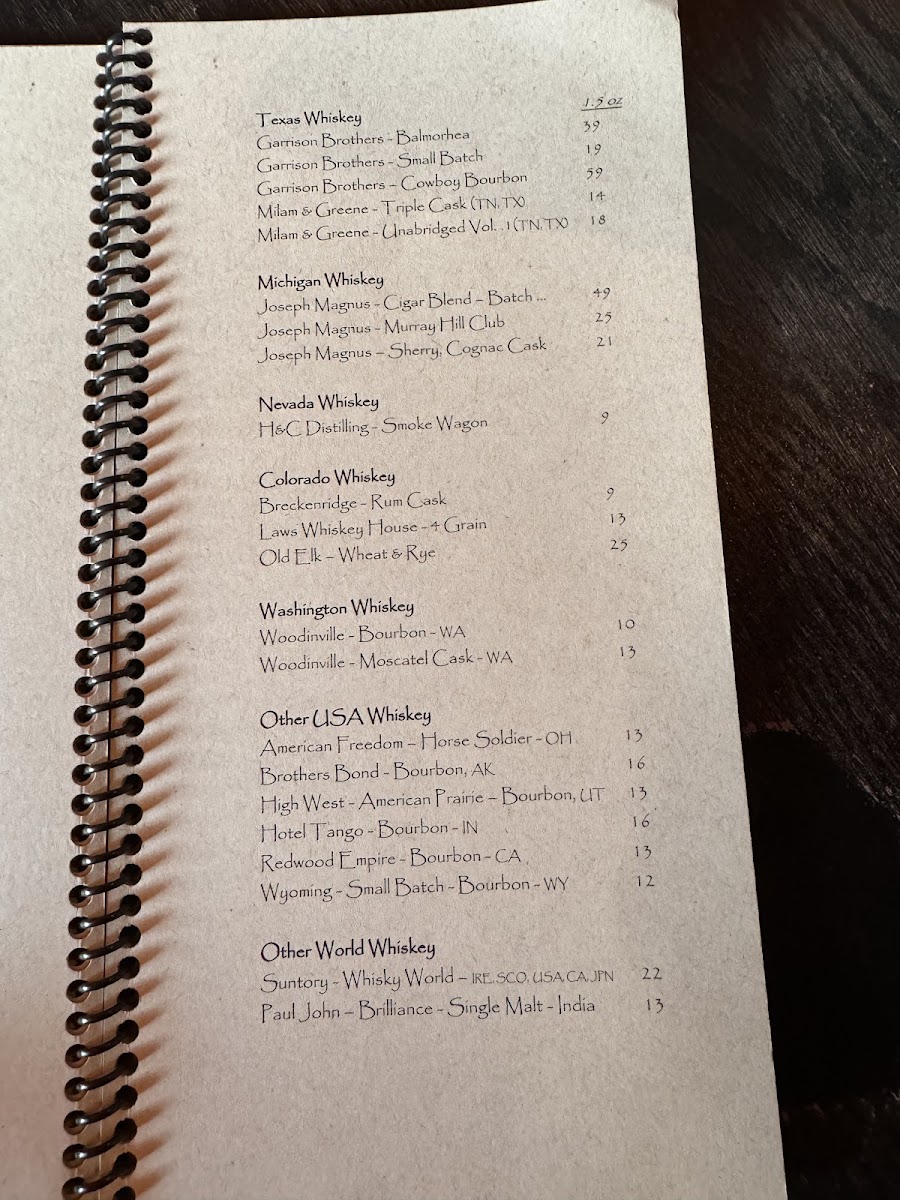 1.5 oz
Texas Whiskey
Garrison Brothers - Balmorhea 39
Garrison Brothers - Small Batch 19
Garrison Brothers – Cowboy Bourbon 59
Milam & Greene - Triple Cask (TN, TX) 14
Milam & Greene - Unabridged Vol. .1 (TN, TX) 18
Michigan Whiskey
Joseph Magnus - Cigar Blend – Batch ... 49
Joseph Magnus - Murray Hill Club 25
Joseph Magnus – Sherry, Cognac Cask 21
Nevada Whiskey
H&C Distilling - Smoke Wagon 9
Colorado Whiskey
Breckenridge - Rum Cask 9
Laws Whiskey House - 4 Grain 13
Old Elk – Wheat & Rye 25
Washington Whiskey
Woodinville - Bourbon - WA 10
Woodinville - Moscatel Cask - WA 13
Other USA Whiskey
American Freedom – Horse Soldier - OH 13
Brothers Bond - Bourbon, AK 16
High West - American Prairie – Bourbon, UT 13
Hotel Tango - Bourbon - IN 16
Redwood Empire - Bourbon - CA 13
Wyoming - Small Batch - Bourbon - WY 12
Other World Whiskey
Suntory - Whisky World – IRE, SCO, USA, CA, JPN 22
Paul John – Brilliance - Single Malt - India 13